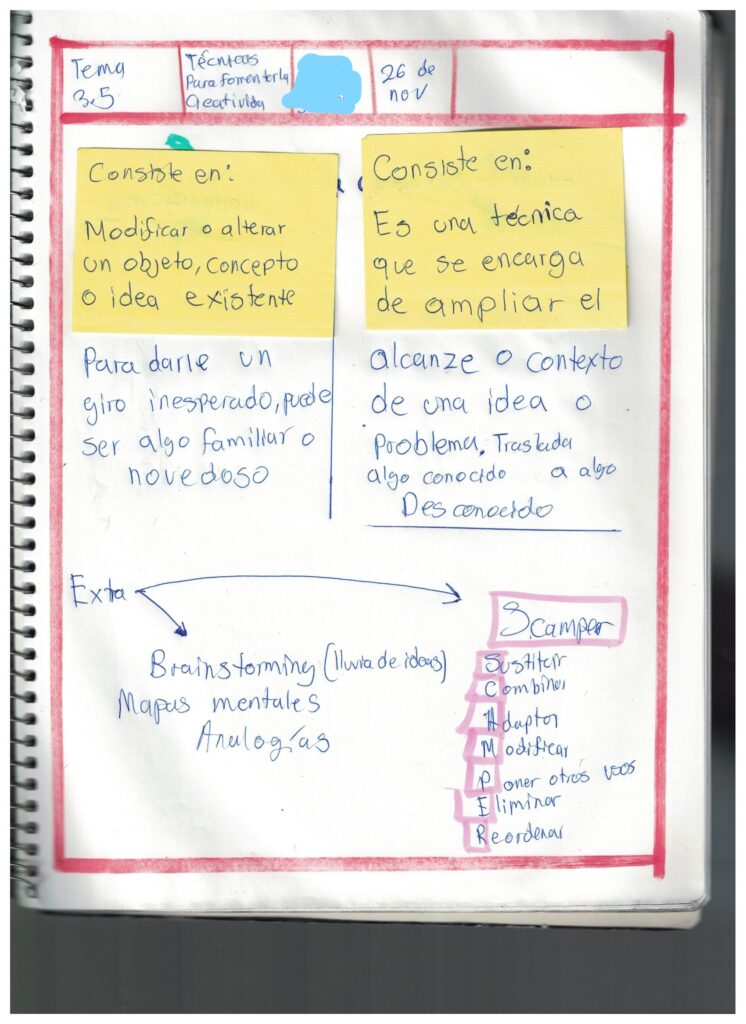 Tema
3.5
Técnicas
Para fomentar la
Creatividad
26 de
nov
Consiste en:
Modificar o alterar
un objeto, concepto
o idea existente
Para darle un
giro inesperado, puede
ser algo familiar o
novedoso
Consiste en:
Es una técnica
que se encarga
de ampliar el
alcanze o contexto
de una idea o
Problema. Traslada
algo conocido a algo
Desconocido
Extra
Brainstorming (lluvia de ideas)
Mapas mentales
Analogías
Scamper
Sustituir
Combinar
Adaptar
Modificar
Poner otros usos
Eliminar
Reordenar